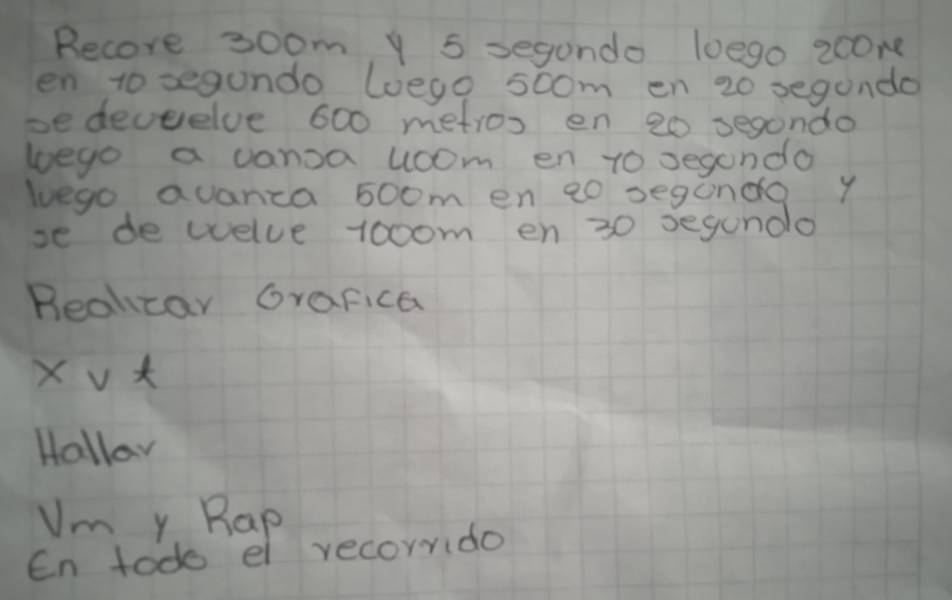 Recore 300m y 5 segundo luego 200m
en 10 segundo luego 500m en 20 segundo
se devuelve 600 metros en 20 segondo
luego a vansa 400m en 10 segundo
luego avanza 500m en 20 segundo y
se de vuelve 1000m en 30 segundo
Realizar Grafica
x v t
Hallar
Vm y Rap
En todo el recorrido